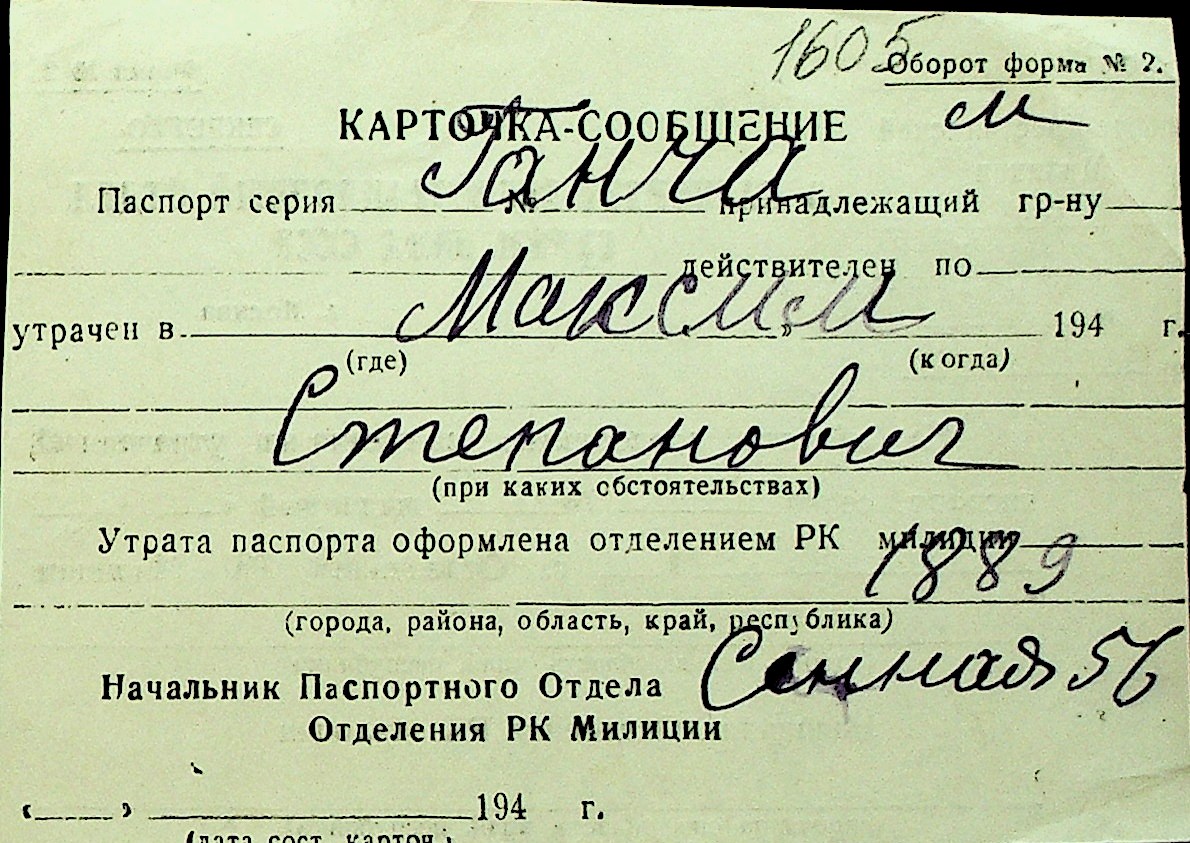 1605 Оборот форма № 2.
м
КАРТОЧКА-СООБЩЕНИЕ
Ганча
Паспорт серия № принадлежащий гр-ну
действителен по
Максим
утрачен в 194 г.
(где) (когда)
Степанович
(при каких обстоятельствах)
Утрата паспорта оформлена отделением РК милиции
1889
(города, района, область, край, республика)
Сенная 56
Начальник Паспортного Отдела
Отделения РК Милиции
« » 194 г.
(дата сост. карточ.)